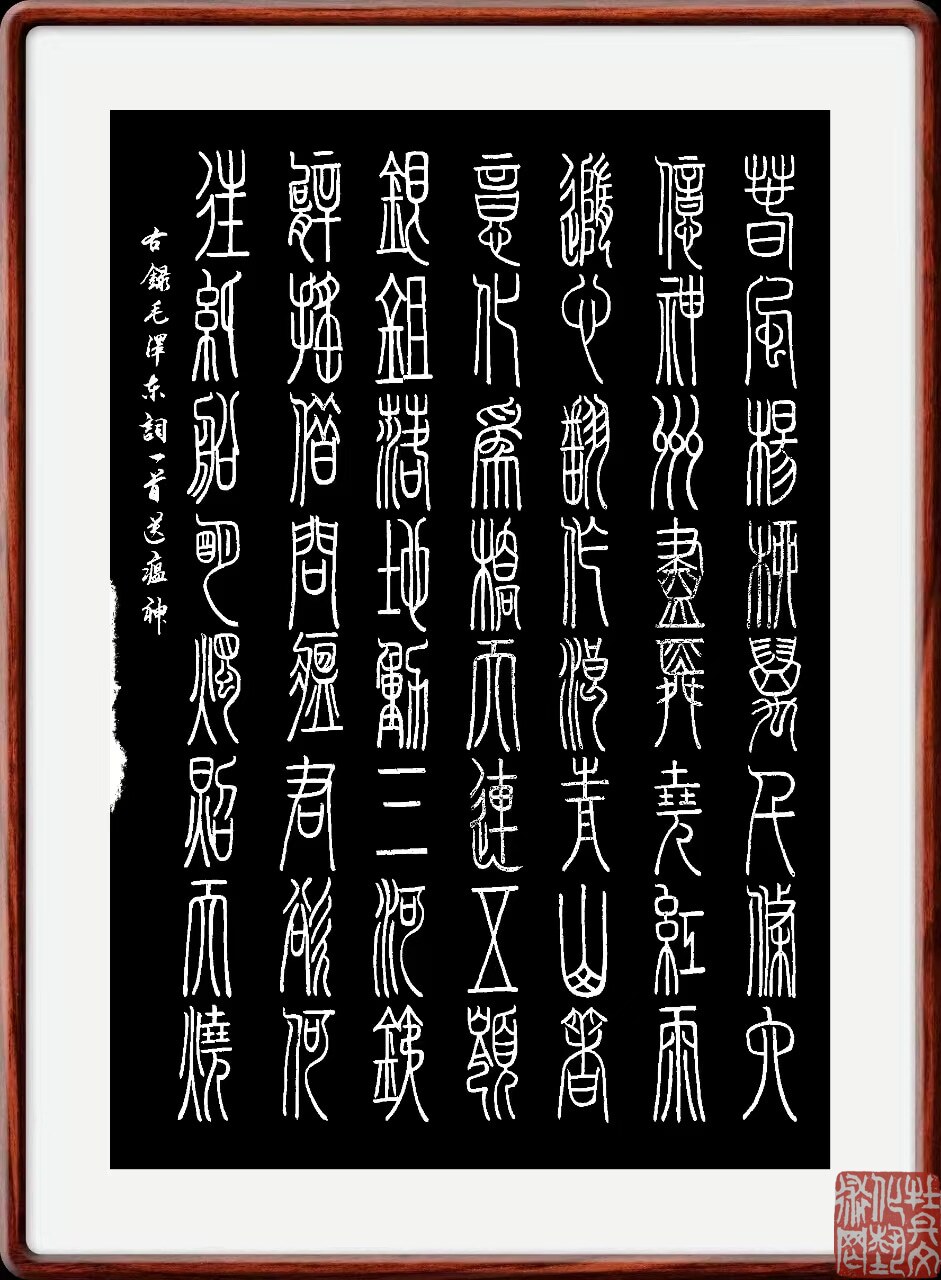 春風楊柳萬千條六
億神州盡舜堯紅雨
隨心翻作浪青山著
意化爲橋天連五嶺
銀鉏落地動三河銕
臂搖借問瘟君欲何
往紙船明燭照天燒
右錄毛澤东詞一首送瘟神